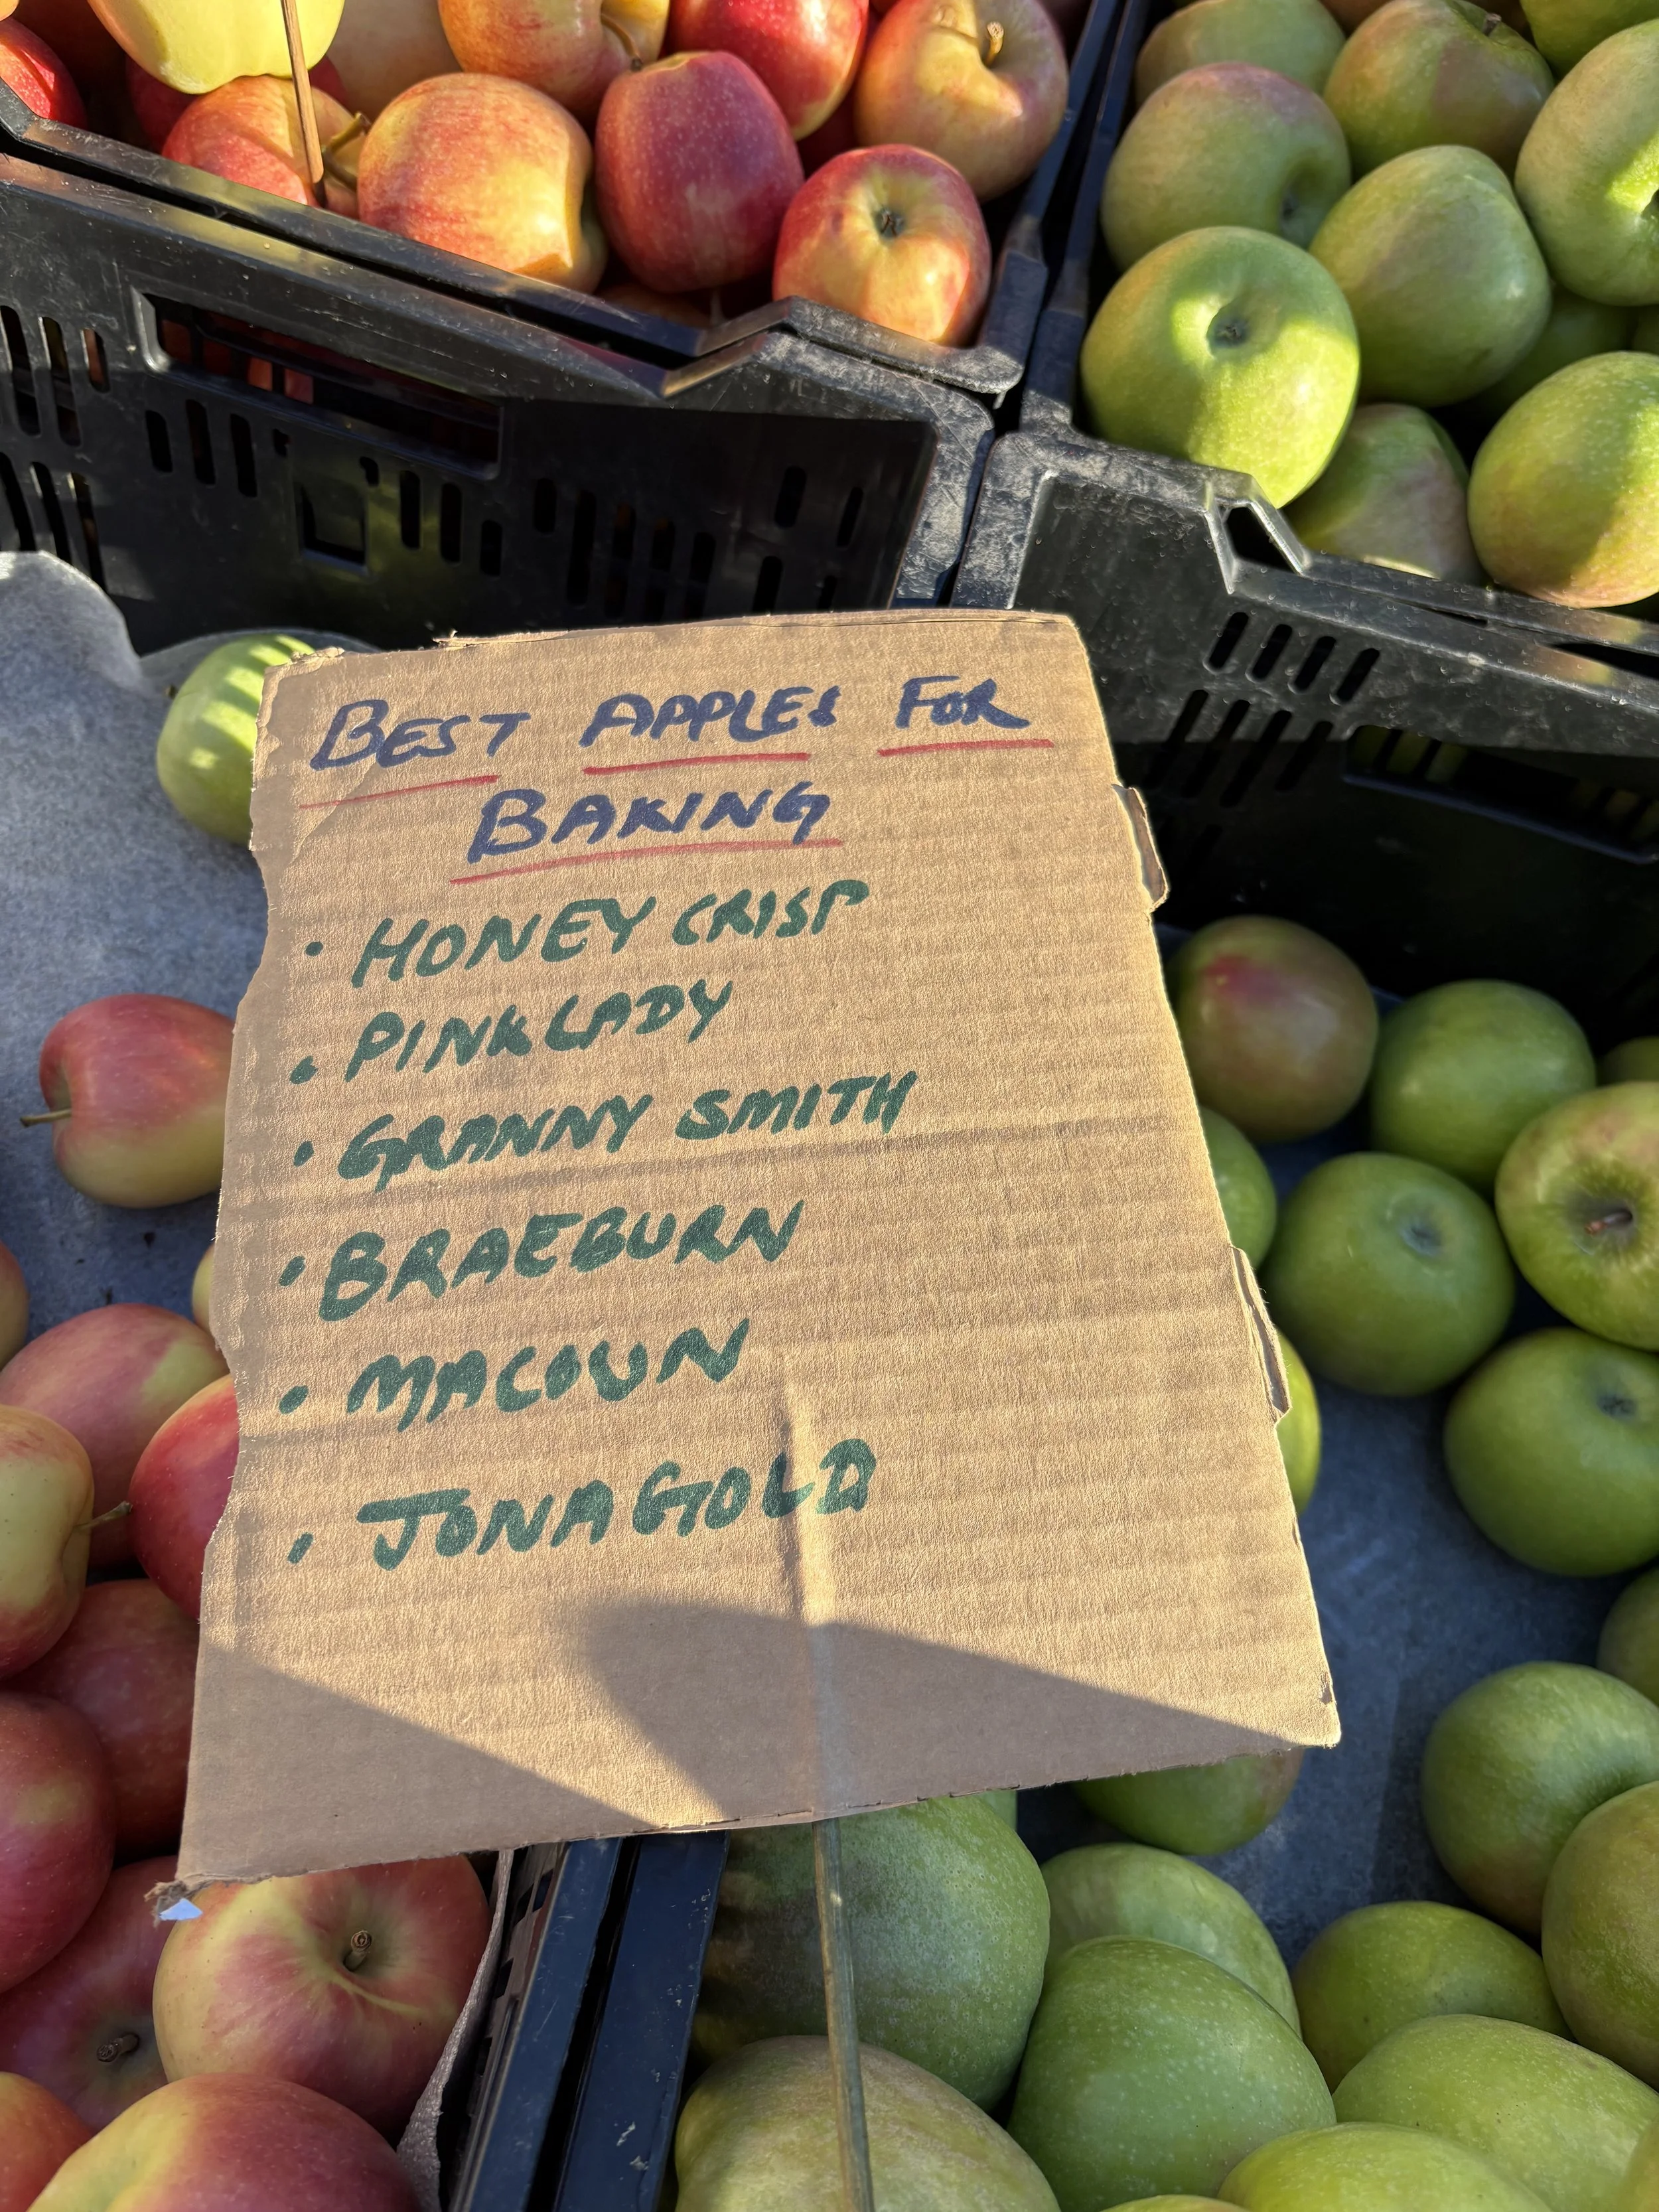 BEST APPLES FOR
BAKING
• HONEY CRISP
• PINK LADY
• GRANNY SMITH
• BRAEBURN
• MACOUN
• JONAGOLD